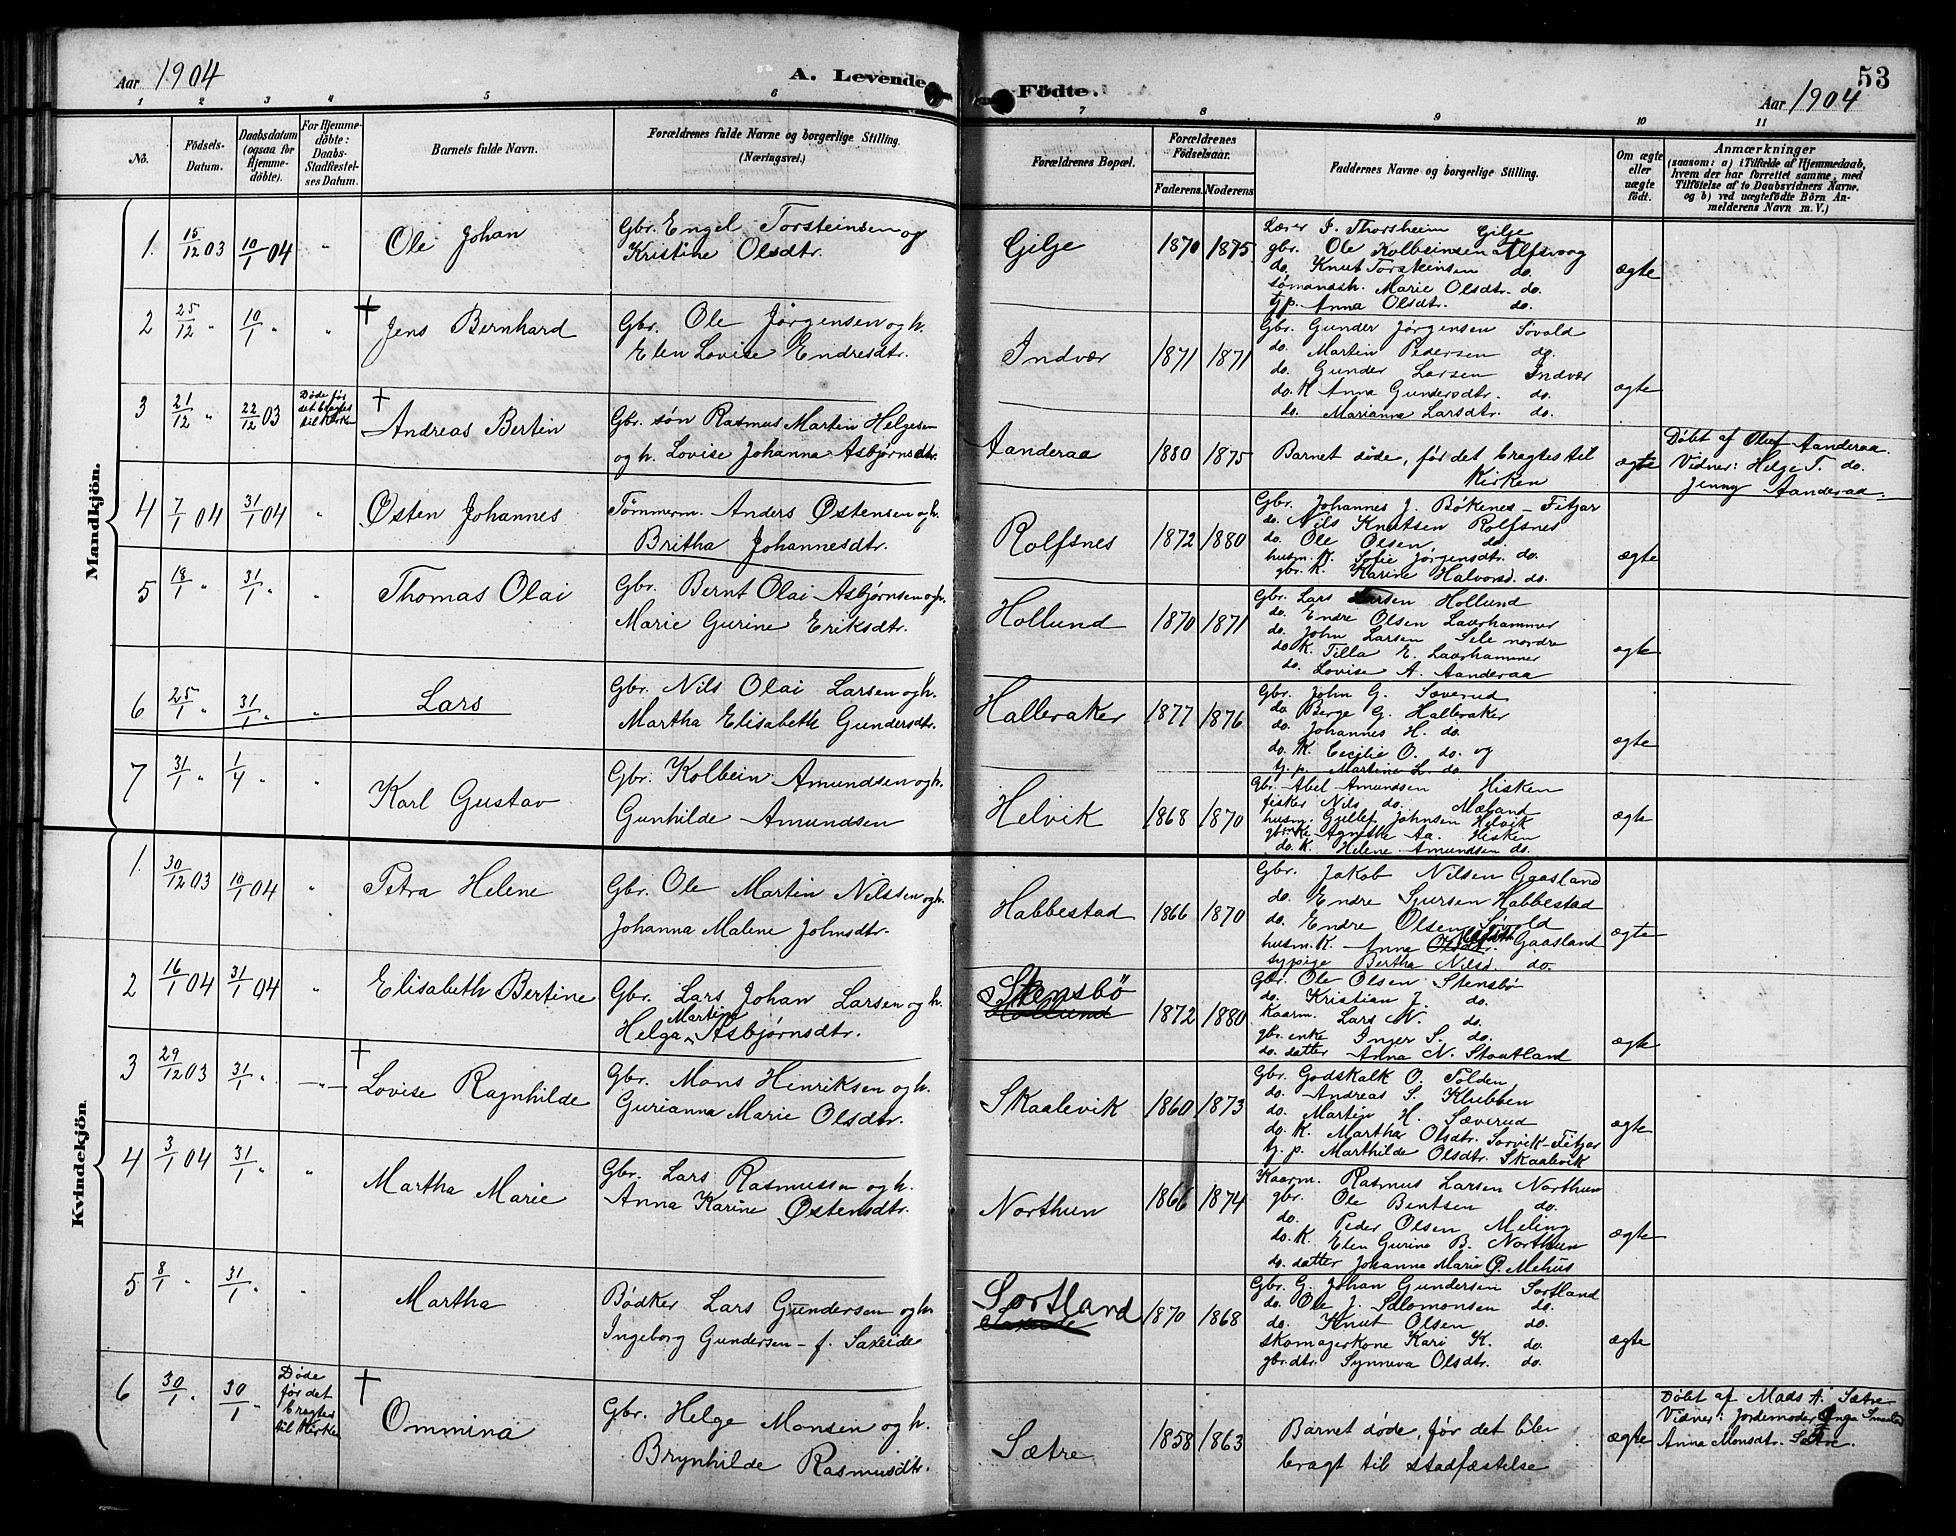 Aar 1904
A. Levende Födte.
Aar 1904
53
1 2 3 4 5 6 7 8 9 10 11
No.
Födsels-Datum.
Daabsdatum (ogsaa for Hjemme-döbte).
For Hjemme-döbte: Daabs-Stadfæstelses Datum.
Barnets fulde Navn.
Forældrenes fulde Navne og borgerlige Stilling. (Næringsvei.)
Forældrenes Bopæl.
Forældrenes Födselsaar.
Faderens. Moderens.
Faddernes Navne og borgerlige Stilling.
Om ægte eller uægte födt.
Anmærkninger
(saasom: a) i Tilfælde af Hjemmedaab,
hvem der har forrettet samme, med
Tilföielse af to Daabsvidners Navne,
og b) ved uægtefödte Börn An-
melderens Navn m. V.)
Mandkjön.
1. 15/12 03 10/1 04 " Ole Johan
Gbr. Engel Torsteinsen og
Kristine Olsdtr.
Gilje 1870 1875
Lærer P. Thorsheim Gilje
gbr. Ole Kolbeinsen Alfsvaag
do. Knut Torsteinsen do.
sømandsk. Marie Olsdtr. do.
tjp. Anna Olsdtr. do.
ægte
2 25/12 " 10/1 " " † Jens Bernhard
Gbr. Ole Jørgensen og h.
Elen Lovise Endresdtr.
Indvær 1871 1871
Gbr. Gunder Jørgensen Søvold
do. Martin Pedersen do.
do. Gunder Larsen Indvær
do. K. Anna Gundersdtr. do.
do. Marianna Larsdtr. do.
ægte
3 21/12 " 22/12 03
Døde før
det bragtes
til Kirken
† Andreas Bertin
Gbr. søn Rasmus Martin Helgesen
og h. Lovise Johanna Asbjørnsdtr.
Aanderaa 1880 1875
Barnet døde, før det bragtes til
Kirken
ægte
Døbt af Oluf Aanderaa.
Vidner: Helge T. do.
Jenny Aanderaa.
4 7/1 04 31/1 04 " Østen Johannes
Tømmerm. Anders Østensen og h.
Britha Johannesdtr.
Rolfsnes 1872 1880
Gbr. Johannes J. Bøkenes - Fitjar
do. Nils Knutsen Rolfsnes
do. Ole Olsen do.
husm. K. Sofie Jørgensdtr. do.
gbr. K. Karine Halvorsd. do.
ægte
5 18/1 " 31/1 " " Thomas Olai
Gbr. Bernt Olai Asbjørnsen og h.
Marie Gurine Eriksdtr.
Hollund 1870 1871
Gbr. Lars Larsen Hollund
do. Endre Olsen Laurhammer
do. John Larsen Sele nordre
do. K. Tilla E. Laurhammer
do. Lovise A. Aanderaa
ægte
6 25/1 " 31/1 " " Lars
Gbr. Nils Olai Larsen og h.
Martha Elisabeth Gundersdtr.
Halleraker 1877 1876
Gbr. John G. Sæverud
do. Berge G. Halleraker
do. Johannes H. do.
do. K. Cecilie O. do. og
tj. p. Martine L. do.
ægte
7 31/1 " 1/4 " " Karl Gustav
Gbr. Kolbein Amundsen og h.
Gunhilde Amundsen
Helvik 1868 1870
Gbr. Abel Amundsen Hisken
fisker Nils do. Mæland
husm. Gullef Johnsen Helvik
gbr. K. Agnethe Aa. Hisken
do. K. Helene Amundsen do.
ægte
Kvindekjön
1. 30/12 03 10/1 04 " Petra Helene
Gbr. Ole Martin Nilssen og h.
Johanna Malene Johnsdtr.
Habbestad 1866 1870
Gbr. Jakob Nilsen Gaasland
do. Endre Sjursen Habbestad
do. Endre Olsen Søvold
husm. K. Anna Gaasland
sypige Bertha Nilsd. do.
ægte
2 16/1 04 31/1 04 " Elisabeth Bertine
Gbr. Lars Johan Larsen og h.
Helga Martine Asbjørnsdtr.
Stensbö
Hollund
1872 1880
Gbr. Ole Olsen Stensbø
do. Kristian J. do.
Kaarm. Lars N. do.
gbr. enke Inger S. do.
do. datter Anna N. Stoutland
ægte
3 29/12 03 31/1 " " † Lovise Ragnhilde
Gbr. Mons Henriksen og h.
Gurianna Marie Olsdtr.
Skaalevik 1860 1873
Gbr. Godskalk O. Folden
do. Andreas S. Klubben
do. Martin H. Sæverud
do. K. Martha Olsdtr. Sorvik - Fitjar
tj. p. Marthilde Olsdtr. Skaalevik
ægte
4 3/1 04 31/1 " " Martha Marie
Gbr. Lars Rasmussen og h.
Anna Karine Østensdtr.
Northun 1866 1874
Kaarm. Rasmus Larsen Northun
gbr. Ole Bentsen do.
do. Peder Olsen Meling
do. K. Elen Gurina B. Northun
do. datter Johanna Marie O. Mehus
ægte
5 8/1 " 31/1 " " Martha
Bødker Lars Gundersen og h.
Ingeborg Gundersen - f. Saxeide
Sortland
Saxeide
1870 1868
Gbr. G. Johan Gundersen Sortland
do. Ole J. Salomonsen do.
do. Knut Olsen do.
skomagerkone Kari K. do.
gbr. dtr. Synneva Olsdtr. do.
ægte
6 30/1 " 30/1 "
Døde
før det
bragtes
til Kirken
† Ommina
Gbr. Helge Monsen og h.
Brynhilde Rasmusdtr.
Sætre 1858 1863
Barnet døde, før det blev
bragt til stadfæstelse
ægte
Døbt af Mads A. Sætre
Vidner: Jordemoder Inga
Anna Monsdtr. Sætre.